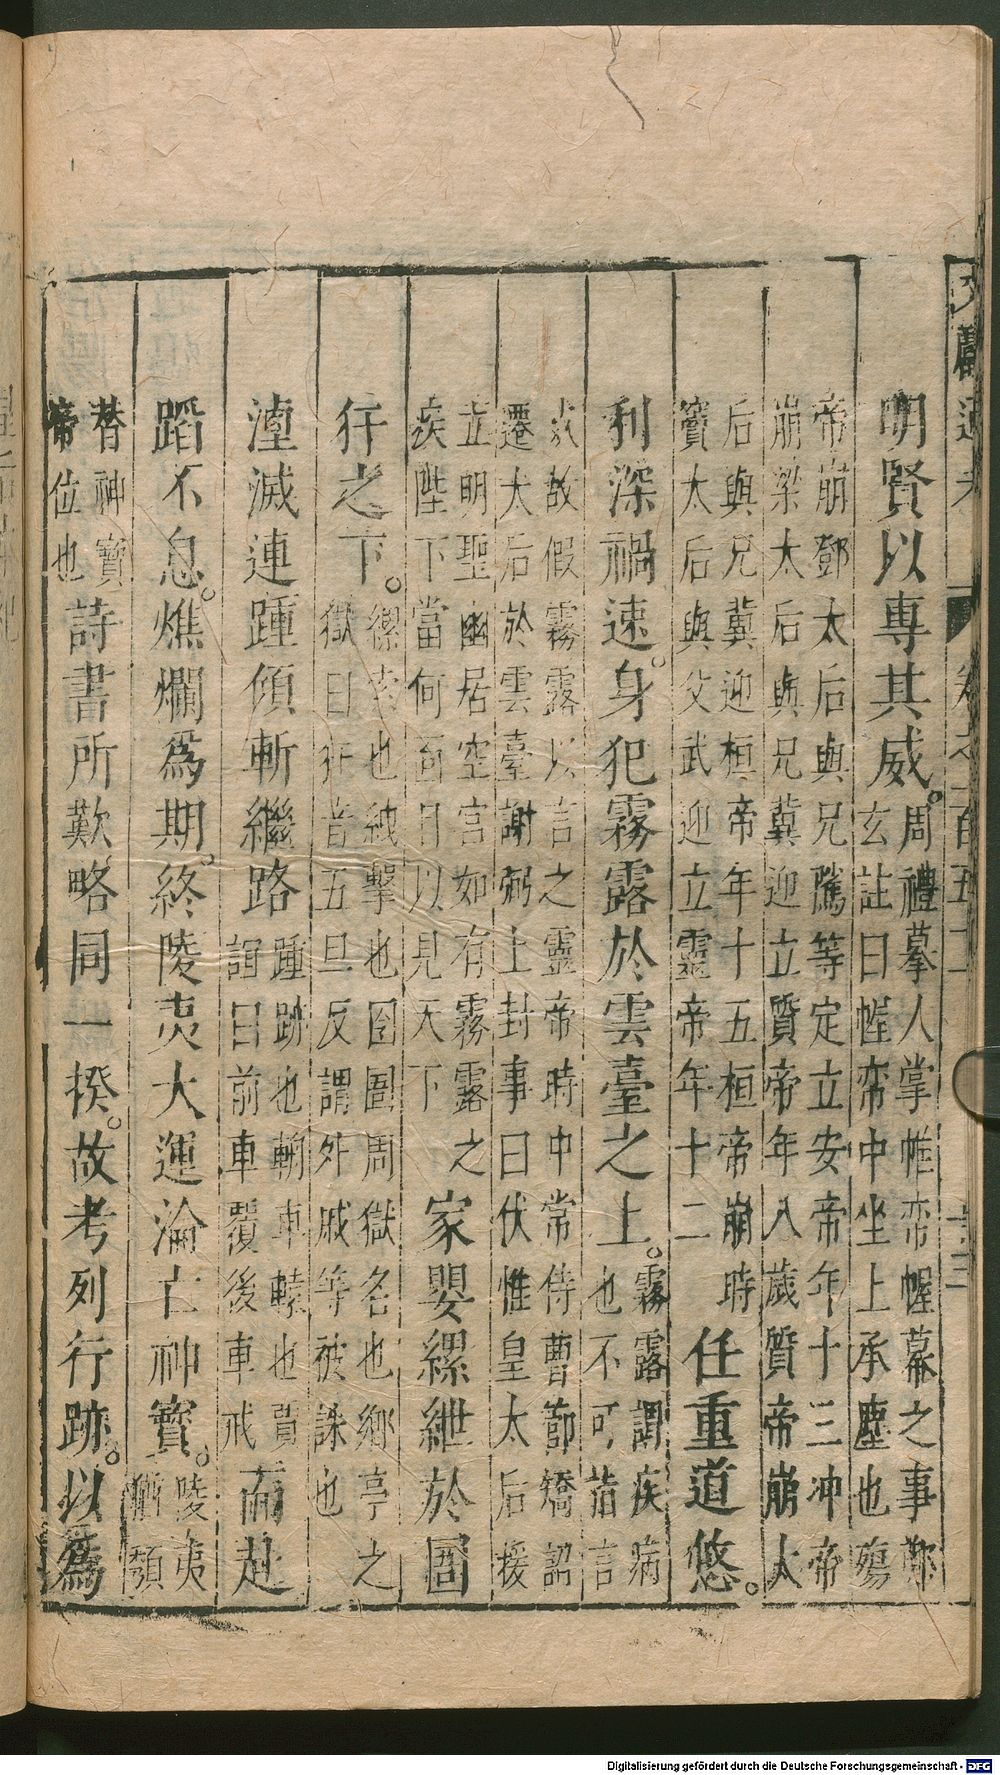 文獻通考 卷之二百五十二
明賢以專其威。周禮摹人掌帷帟幄幕之事鄭
玄註曰幄帟中坐上承塵也殤
帝崩鄧太后與兄隲等定立安帝年十三冲帝
崩梁太后與兄冀迎立質帝年八歲質帝崩太
后與兄冀迎桓帝年十五桓帝崩時
竇太后與父武迎立靈帝年十二任重道悠。
利深禍速。身犯霧露於雲臺之上。霧露謂疾病
也不可指言
故假霧露以言之靈帝時中常侍曹節矯詔
遷太后於雲臺謝弼上封事曰伏惟皇太后援
立明聖幽居空宮如有霧露之
疾陛下當何面目以見天下家嬰縲紲於圄
犴之下。縲索也紲擊也囹圄周獄名也鄉亭之
獄曰犴音五旦反謂外戚等被誅也
湮滅連踵傾輈繼路踵跡也輈車轅也賈
誼曰前車覆後車戒而赴
蹈不息。燋爛為期。終陵夷大運淪亡神寶。陵夷
猶頹
替神寶
帝位也詩書所歎略同一揆。故考列行跡。以為
Digitalisierung gefördert durch die Deutsche Forschungsgemeinschaft - DFG